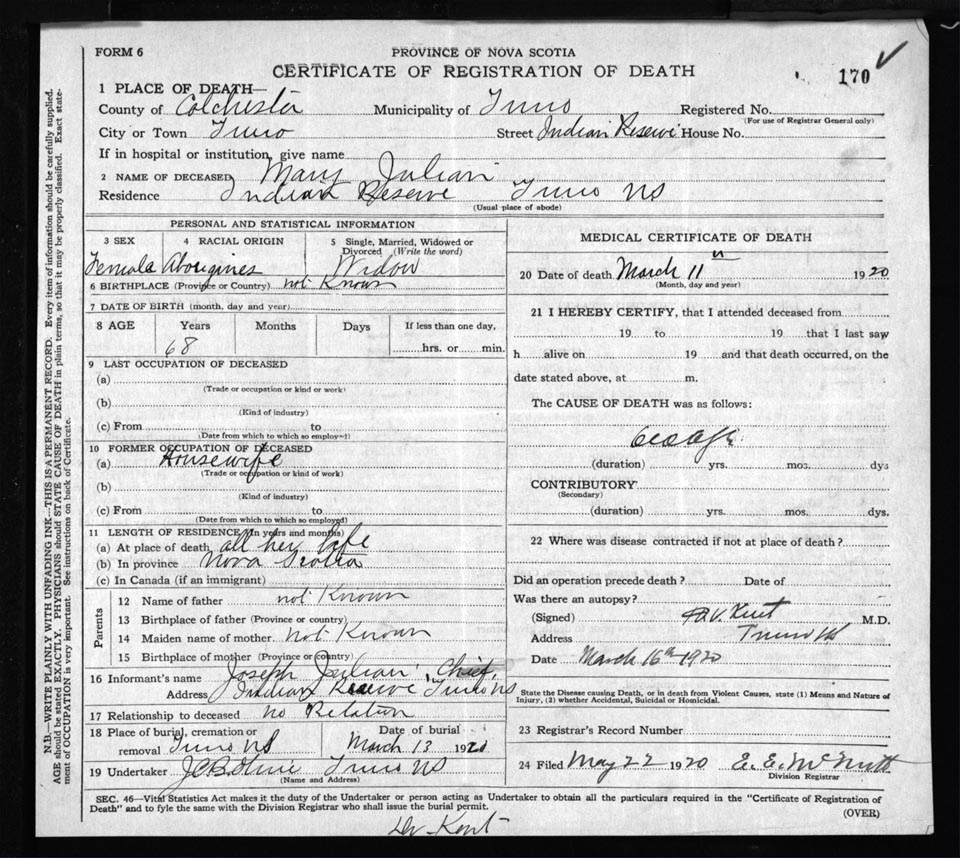 FORM 6
PROVINCE OF NOVA SCOTIA
CERTIFICATE OF REGISTRATION OF DEATH
170
1 PLACE OF DEATH—
County of Colchester Municipality of Truro Registered No.
(For use of Registrar General only)
City or Town Truro Street Indian Reserve House No.
If in hospital or institution, give name
2 NAME OF DECEASED Mary Julian
Residence Indian Reserve Truro NS
(Usual place of abode)
PERSONAL AND STATISTICAL INFORMATION
3 SEX 4 RACIAL ORIGIN 5 Single, Married, Widowed or Divorced (Write the word)
Female Aborigines Widow
6 BIRTHPLACE (Province or Country) not Known
7 DATE OF BIRTH (month, day and year)
8 AGE Years Months Days If less than one day,
68 hrs. or min.
9 LAST OCCUPATION OF DECEASED
(a)
(Trade or occupation or kind or work)
(b)
(Kind of industry)
(c) From to
(Date from which to which so employed)
10 FORMER OCCUPATION OF DECEASED
(a) Housewife
(Trade or occupation or kind of work)
(b)
(Kind of industry)
(c) From to
(Date from which to which so employed)
11 LENGTH OF RESIDENCE (In years and months)
(a) At place of death all her life
(b) In province Nova Scotia
(c) In Canada (if an immigrant)
Parents
12 Name of father not Known
13 Birthplace of father (Province or country)
14 Maiden name of mother not Known
15 Birthplace of mother (Province or country)
16 Informant's name Joseph Julian, Chief,
Address Indian Reserve Truro NS
17 Relationship to deceased no Relation
18 Place of burial, cremation or Date of burial
removal Truro NS March 13 1920
19 Undertaker Truro NS
(Name and Address)
MEDICAL CERTIFICATE OF DEATH
20 Date of death March 11 1920
(Month, day and year)
21 I HEREBY CERTIFY, that I attended deceased from
19 to 19 that I last saw
h alive on 19 and that death occurred, on the
date stated above, at m.
The CAUSE OF DEATH was as follows:
(duration) yrs. mos. dys
CONTRIBUTORY
(Secondary)
(duration) yrs. mos. dys.
22 Where was disease contracted if not at place of death?
Did an operation precede death? Date of
Was there an autopsy?
(Signed) Kent M.D.
Address Truro NS
Date March 16th 1920
State the Disease causing Death, or in death from Violent Causes, state (1) Means and Nature of
Injury, (2) whether Accidental, Suicidal or Homicidal.
23 Registrar's Record Number
24 Filed May 22 1920 E. E. McNutt
Division Registrar
SEC. 46—Vital Statistics Act makes it the duty of the Undertaker or person acting as Undertaker to obtain all the particulars required in the "Certificate of Registration of
Death" and to fyle the same with the Division Registrar who shall issue the burial permit.
(OVER)
Dr. Kent
N.B.—WRITE PLAINLY WITH UNFADING INK—THIS IS A PERMANENT RECORD. Every item of information should be carefully supplied.
AGE should be stated EXACTLY. PHYSICIANS should STATE CAUSE OF DEATH in plain terms, so that it may be properly classified. Exact state-
ment of OCCUPATION is very important. See instructions on back of Certificate.